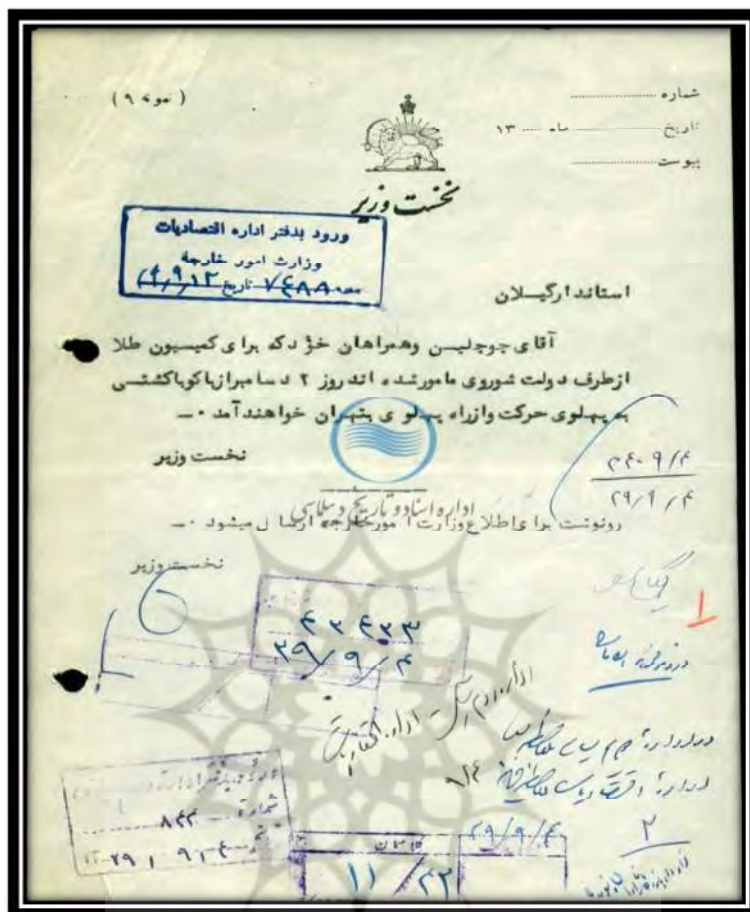 ( نمونه ۹ )
شماره
تاریخ ماه ۱۳
پیوست
نخست وزیر
ورود بدفتر اداره اقتصادیات
وزارت امور خارجه
۷۴۸۸ تاریخ ۲۹/۹/۱۲
استاندارگیلان
آقای چوچلین وهمراهان خود که برای کمیسیون طلا
ازطرف دولت شوروی مامورشده اند روز ۲ دسامبر ازباکو باکشتی
به پهلوی حرکت وازراه پهلوی بتهران خواهند آمد ۰ــ
نخست وزیر
۲۹/۹/۴
اداره اسناد و تاریخ دیپلماسی
رونوشت برای اطلاع وزارت امورخارجه ارسال میشود ۰ــ
نخست وزیر
۱
۴۳۴۳۳
۲۹/۹/۴
اداره دوم سیاسی
اداره اقتصادیات
شماره ۸۴۴
۲۹/۹/۴
۲۹/۹/۴
۲
۱۱/۴۲